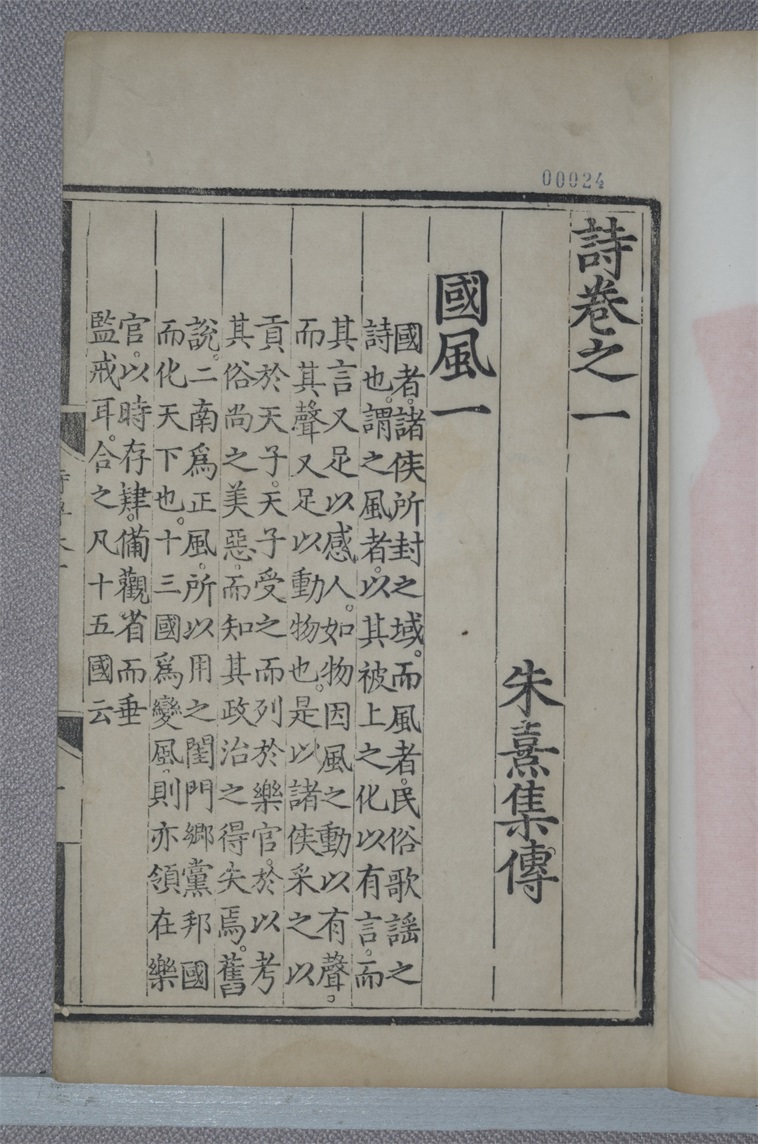 00024
詩卷之一
朱熹集傳
國風一
國者。諸侯所封之域。而風者。民俗歌謡之
詩也。謂之風者。以其被上之化以有言。而
其言又足以感人。如物因風之動以有聲。
而其聲又足以動物也。是以諸侯采之以
貢於天子。天子受之而列於樂官。於以考
其俗尚之美惡。而知其政治之得失焉。舊
說。二南爲正風。所以用之閨門鄉黨邦國
而化天下也。十三國爲變風。則亦領在樂
官。以時存肄。備觀省而垂
監戒耳。合之凡十五國云